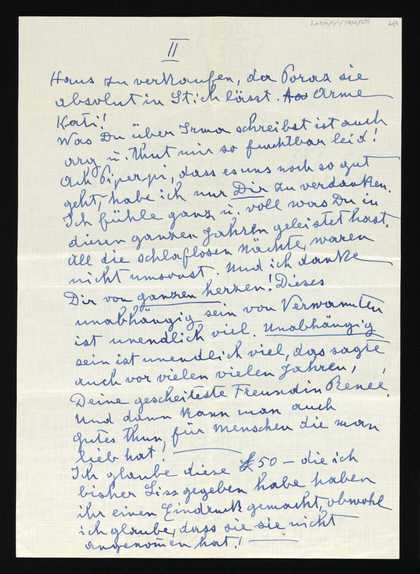 II
Haus zu verkaufen, da Poras sie
absolut in Stich lässt. Arme
Kati!
Was Du über Irma schreibst ist auch
arg u. thut mir so furchtbar leid!
Ach Piperpi, dass es uns noch so gut
geht, habe ich nur Dir zu verdanken.
Ich fühle ganz u. voll was Du in
diesen ganzen Jahren geleistet hast.
All die schlaflosen Nächte, waren
nicht umsonst. Und ich danke
Dir von ganzen herzen! Dieses
unabhängig sein von Verwandten
ist unendlich viel. Unabhängig
sein ist unendlich viel, das sagte
auch vor vielen vielen Jahren,
Deine gescheiteste Freundin Renee!
Und dann kann man auch
gutes thun, für Menschen die man
lieb hat!
Ich glaube diese £50 – die ich
bisher Liss gegeben habe haben
ihr einen Eindruck gemacht, obwohl
ich glaube, dass sie sie nicht
angenommen hat! —